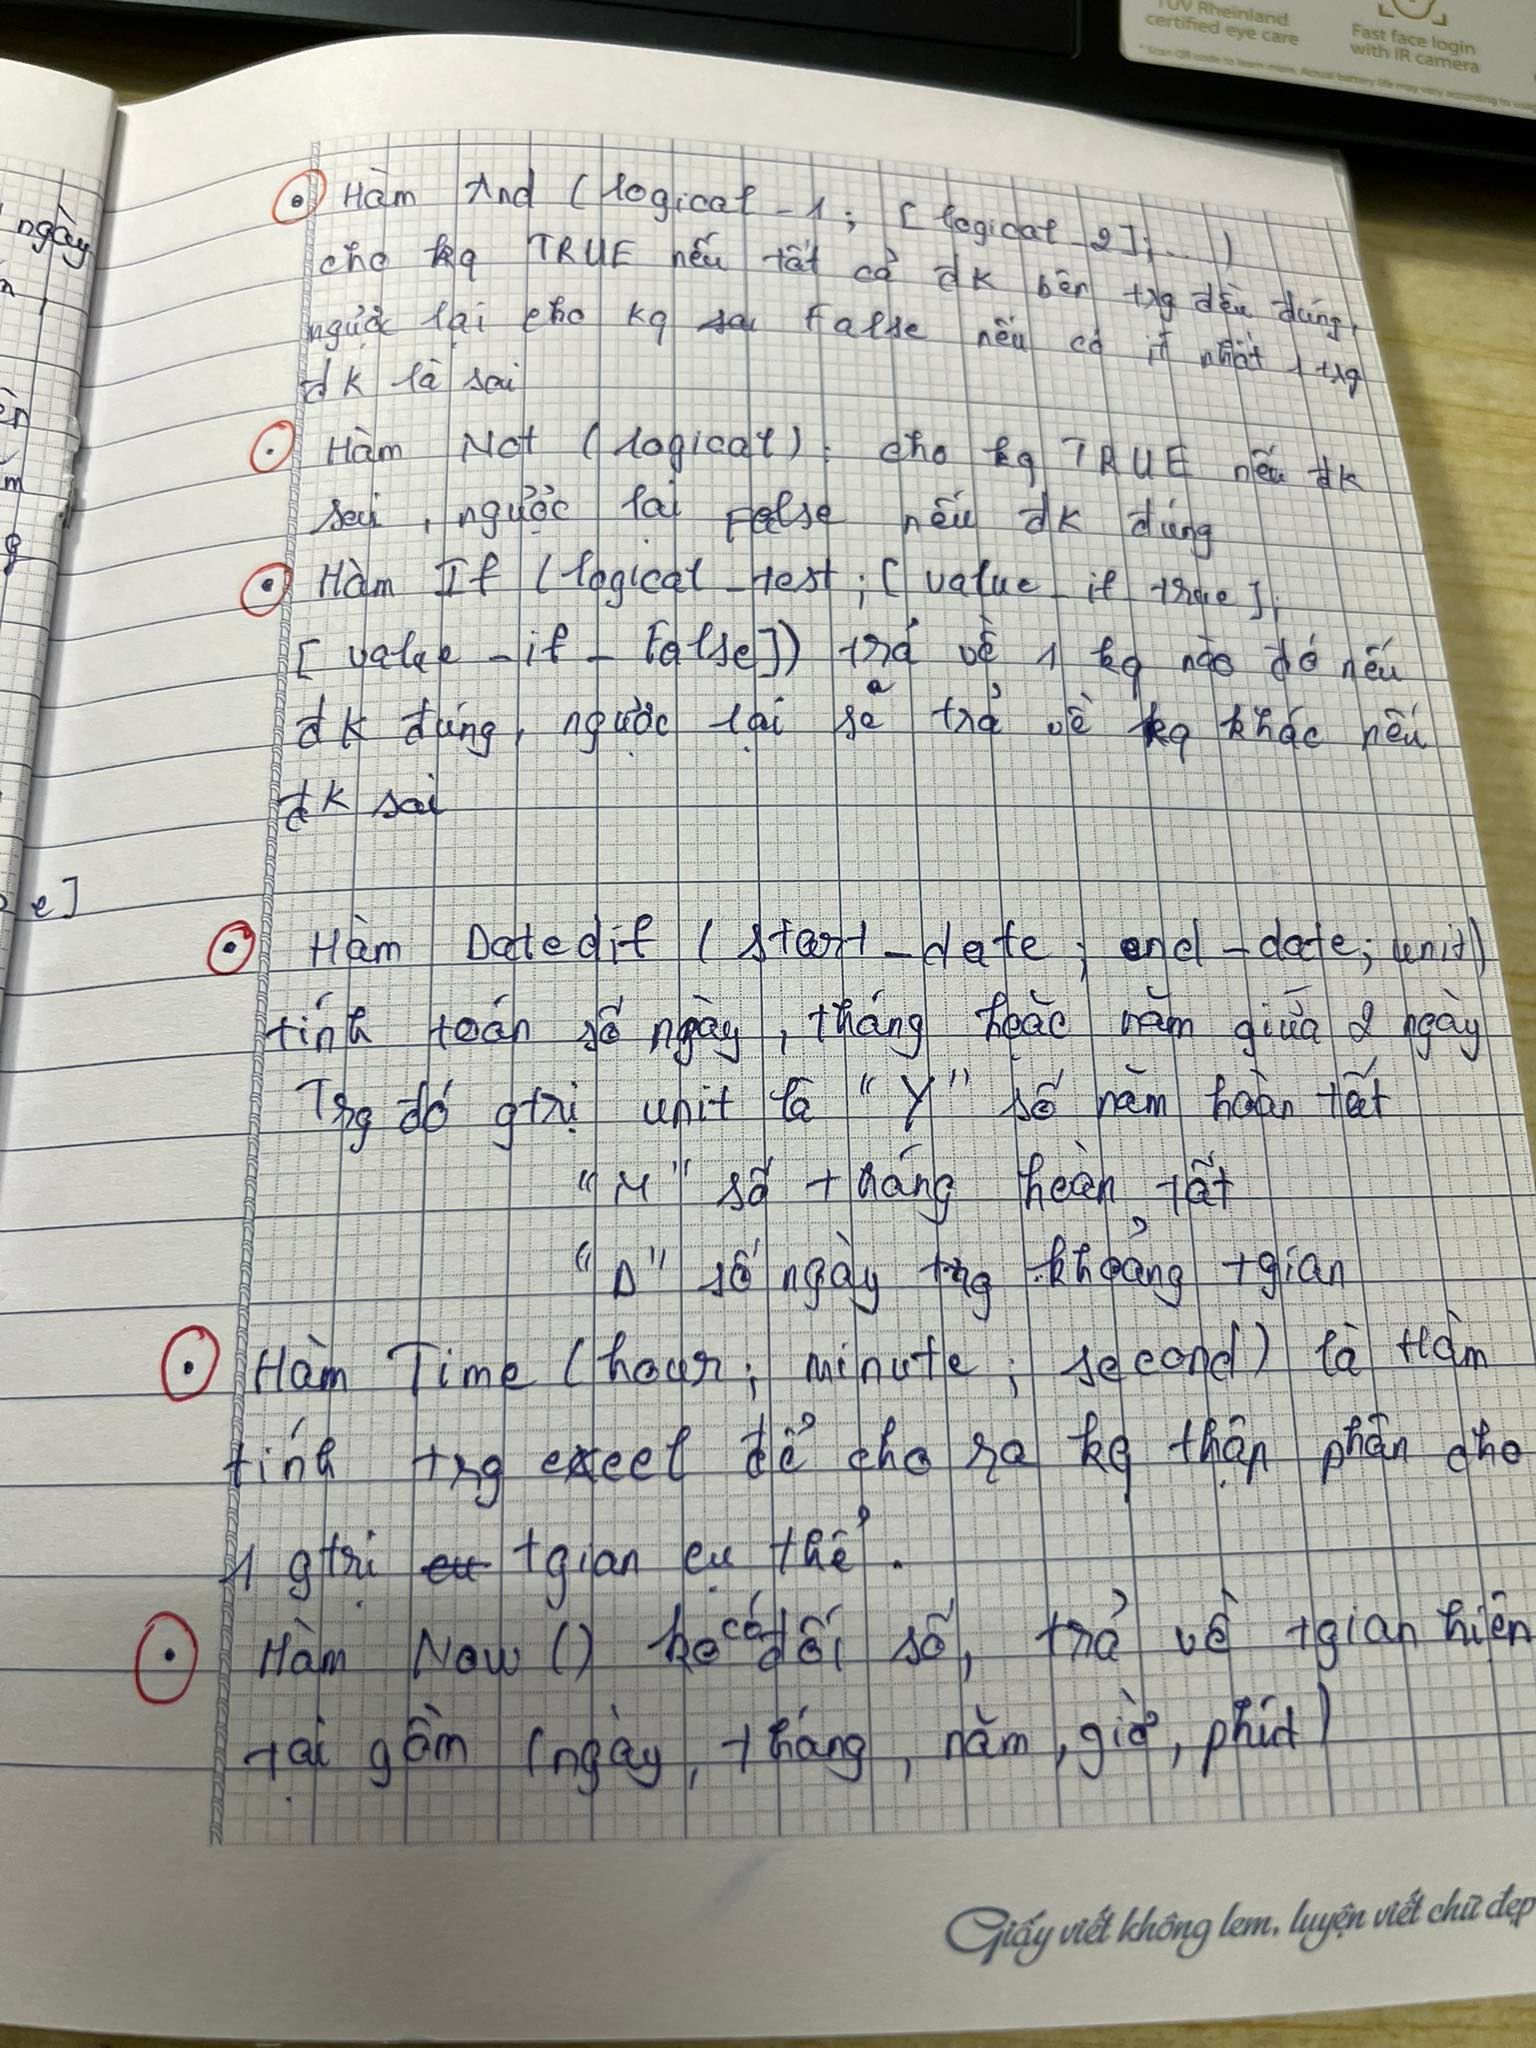 TÜV Rheinland
certified eye care
Fast face login
with IR camera
* Scan QR code to learn more. Actual battery life may vary according to
ngày
e]
Hàm And (logical_1; [logical_2];...)
cho kq TRUE nếu tất cả đk bên trg đều đúng,
ngược lại cho kq False nếu có ít nhất 1 trg
đk là sai
Hàm Not (logical): cho kq TRUE nếu đk
sai, ngược lại False nếu đk đúng
Hàm If (logical_test; [value_if true];
[value_if_False]) trả về 1 kq nào đó nếu
đk đúng, ngược lại sẽ trả về kq khác nếu
đk sai
Hàm Datedif (start_date; end_date; unit)
tính toán số ngày, tháng hoặc năm giữa 2 ngày
Trg đó gtrị unit là "Y" số năm hoàn tất
"M" số tháng hoàn tất
"D" số ngày trg khoảng tgian
Hàm Time (hour; minute; second) là Hàm
tính trg excel để cho ra kq thập phân cho
1 gtrị tgian cụ thể.
Hàm Now () ko có đối số, trả về tgian hiện
tại gồm (ngày, tháng, năm, giờ, phút)
Giấy viết không lem, luyện viết chữ đẹp